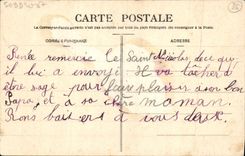 CARTE POSTALE
La Correspondance au recto n'est pas acceptée par tous les pays étrangers (Se renseigner à la Poste)
CORRESPONDANCE
ADRESSE
remercie le Saint Nicolas, de ce qu
il lui a envoyé. Il va tâcher d
être sage pour faire plaisir à son bon
Papa, et à sa chère maman.
Bons baisers à vous deux.